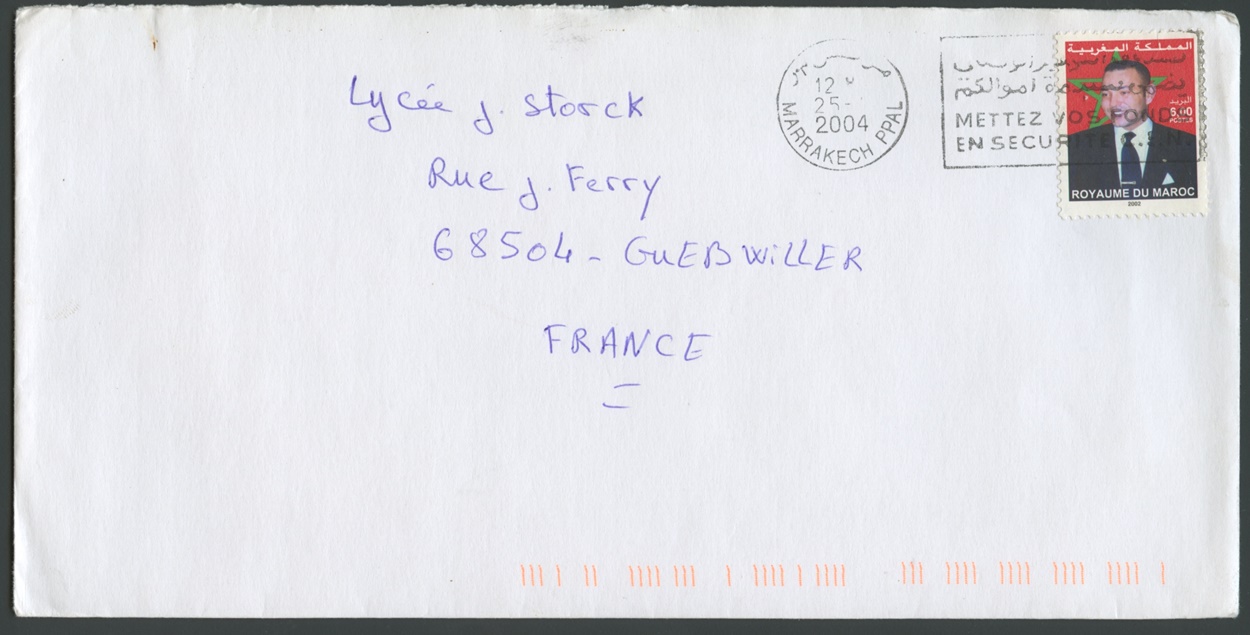 Lycée J. Storck
Rue J. Ferry
68504 - GUEBWILLER
FRANCE
12
25-
2004
MARRAKECH PPAL
أموالكم
METTEZ VOS FONDS
EN SECURITE
المملكة المغربية
البريد
6,00
POSTES
ROYAUME DU MAROC
2002